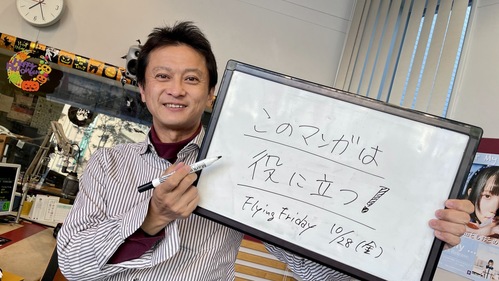 このマンガは
役に立つ!
Flying Friday 10/28(金)